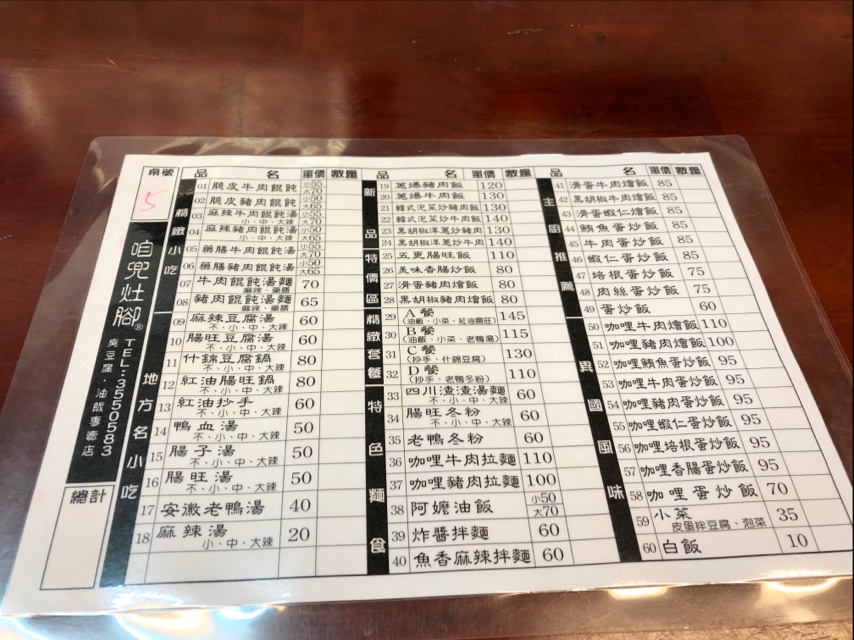 桌號
5
咱兜灶腳®
臭豆腐・油飯專賣店
TEL:3550583
總計
品名 單價 數量
精緻小吃
01 脆皮牛肉餛飩 小55 大70
02 脆皮豬肉餛飩 小50
03 麻辣牛肉餛飩湯 小55 大70
小、中、大辣
04 麻辣豬肉餛飩湯 小50 大65
小、中、大辣
05 藥膳牛肉餛飩 小55 大70
06 藥膳豬肉餛飩 小50 大65
07 牛肉餛飩湯麵 70
麻辣、藥膳
08 豬肉餛飩湯麵 65
麻辣、藥膳
地方名小吃
09 麻辣豆腐湯 60
不、小、中、大辣
10 腸旺豆腐湯 60
不、小、中、大辣
11 什錦豆腐鍋 80
不、小、中、大辣
12 紅油腸旺鍋 80
不、小、中、大辣
13 紅油抄手 60
不、小、中、大辣
14 鴨血湯 50
不、小、中、大辣
15 腸子湯 50
不、小、中、大辣
16 腸旺湯 50
不、小、中、大辣
17 安徽老鴨湯 40
18 麻辣湯 20
小、中、大辣
品名 單價 數量
新品
19 蔥爆豬肉飯 120
20 蔥爆牛肉飯 130
21 韓式泡菜炒豬肉飯 130
22 韓式泡菜炒牛肉飯 140
23 黑胡椒洋蔥炒豬肉飯 130
24 黑胡椒洋蔥炒牛肉 140
特價區
25 五更腸旺飯 110
26 美味香腸炒飯 80
27 滑蛋豬肉燴飯 80
28 黑胡椒豬肉燴飯 80
精緻套餐
29 A餐 145
(油飯、小菜、紅油腸旺)
30 B餐 115
31 C餐 130
(抄手、什錦豆腐)
32 D餐 110
(抄手、老鴨冬粉)
特色麵食
33 四川渣渣湯麵 60
不、小、中、大辣
34 腸旺冬粉 60
不、小、中、大辣
35 老鴨冬粉 60
36 咖哩牛肉拉麵 110
37 咖哩豬肉拉麵 100
38 阿嬤油飯 小50 大70
39 炸醬拌麵 60
40 魚香麻辣拌麵 60
品名 單價 數量
主廚推薦
41 滑蛋牛肉燴飯 85
42 黑胡椒牛肉燴飯 85
43 滑蛋蝦仁燴飯 85
44 鮪魚蛋炒飯 85
45 牛肉蛋炒飯 85
46 蝦仁蛋炒飯 85
47 培根蛋炒飯 75
48 肉絲蛋炒飯 75
49 蛋炒飯 60
異國風味
50 咖哩牛肉燴飯 110
51 咖哩豬肉燴飯 100
52 咖哩鮪魚蛋炒飯 95
53 咖哩牛肉蛋炒飯 95
54 咖哩豬肉蛋炒飯 95
55 咖哩蝦仁蛋炒飯 95
56 咖哩培根蛋炒飯 95
57 咖哩香腸蛋炒飯 95
58 咖哩蛋炒飯 70
59 小菜 35
皮蛋拌豆腐、泡菜
60 白飯 10